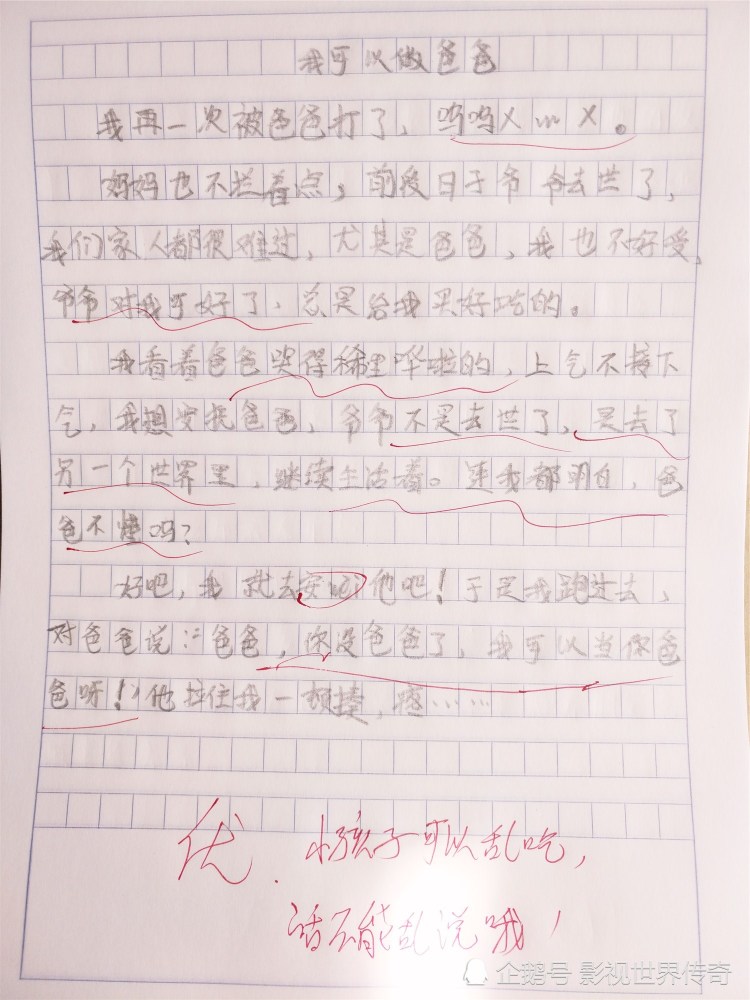 我可以做爸爸
我再一次被爸爸打了，呜呜X…X。
妈妈也不拦着点，前段日子爷爷去世了，
我们家人都很难过，尤其是爸爸，我也不好受，
爷爷对我可好了，总是给我买好吃的。
我看着爸爸哭得稀里哗啦的，上气不接下
气，我想安抚爸爸，爷爷不是去世了，是去了
另一个世界里，继续生活着。连我都明白，爸
爸不懂吗？
好吧，我就去安慰他吧！于是我跑过去，
对爸爸说：“爸爸，你没爸爸了，我可以当你爸
爸呀！”他拉住我一顿揍，疼……
优．小孩子可以乱吃，
话不能乱说哦！
企鹅号 影视世界传奇